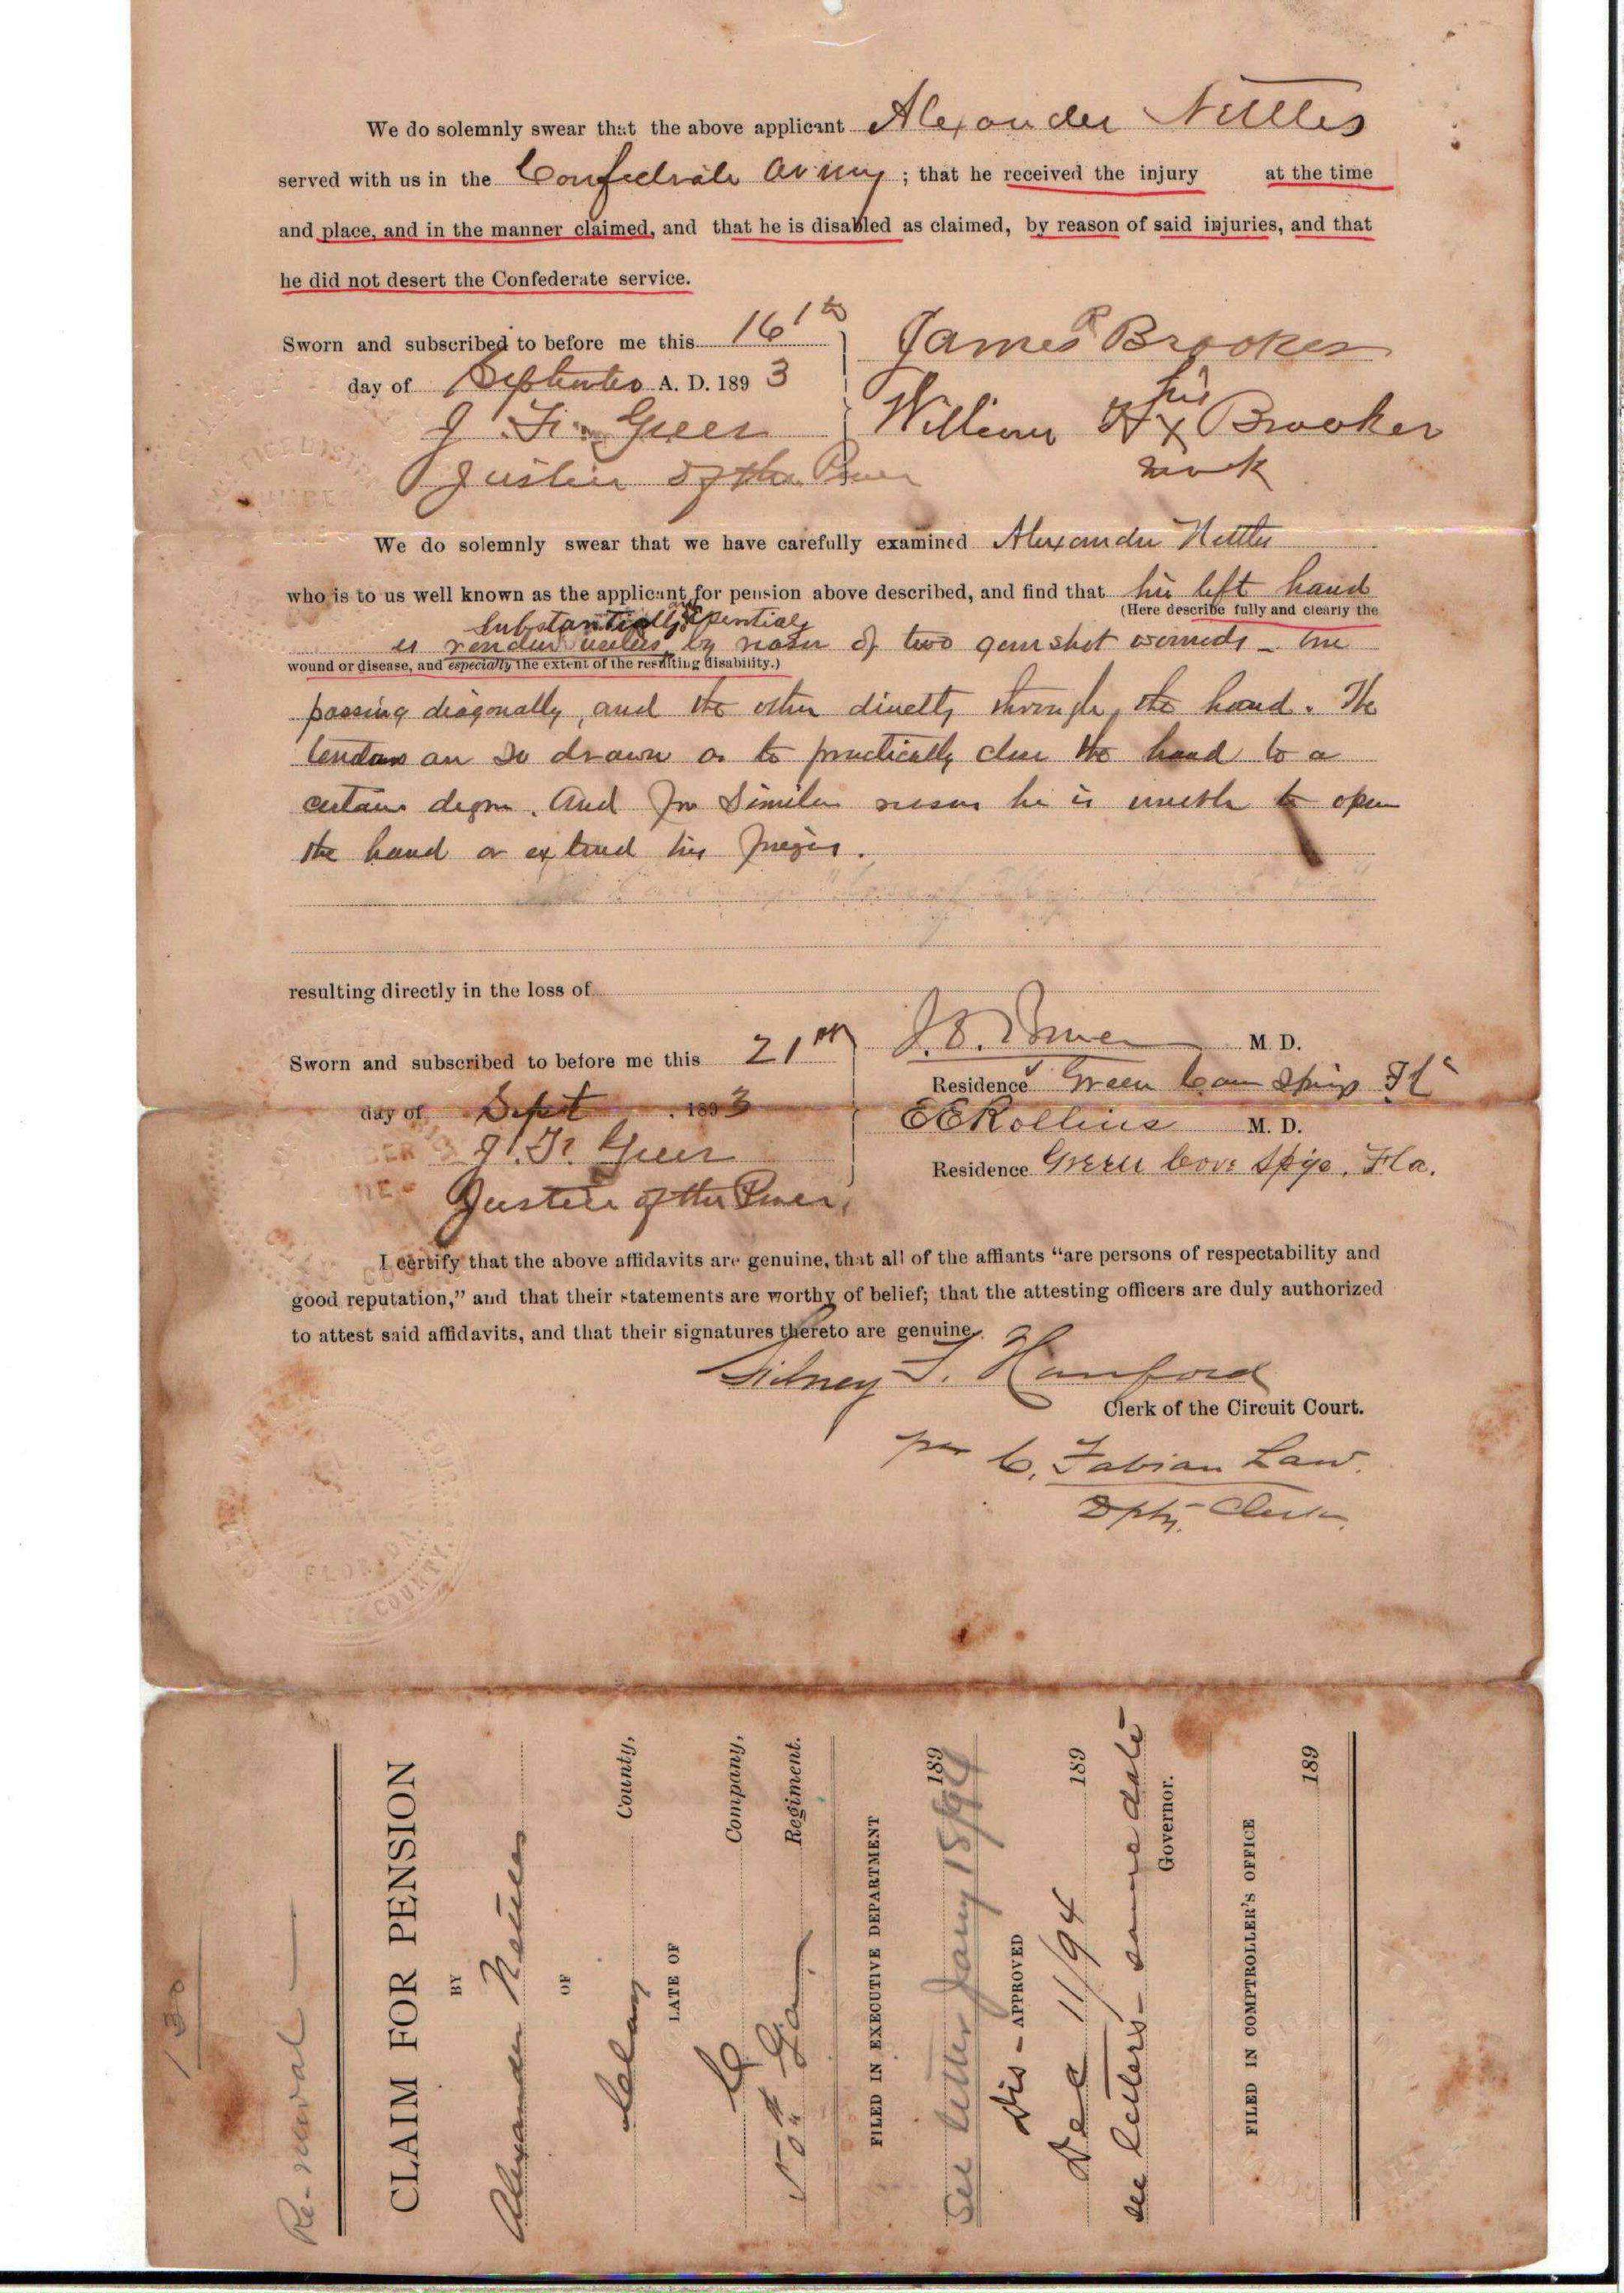 We do solemnly swear that the above applicant Alexander Nettles
served with us in the Confederate Army; that he received the injury at the time
and place, and in the manner claimed, and that he is disabled as claimed, by reason of said injuries, and that
he did not desert the Confederate service.
Sworn and subscribed to before me this 16th
day of September A. D. 1893
J. F. Geer
Justice of the Peace
James R Brooker
his
William H X Brooker
mark
We do solemnly swear that we have carefully examined Alexander Nettles
who is to us well known as the applicant for pension above described, and find that his left hand
(Here describe fully and clearly the
Substantially & essentially
is render useless by reason of two gunshot wounds - one
wound or disease, and especially the extent of the resulting disability.)
passing diagonally, and the other directly through the hand. The
tendons are so drawn as to practically close the hand to a
certain degree. And for similar reason he is unable to open
the hand or extend his fingers.
resulting directly in the loss of
Sworn and subscribed to before me this 21st
day of Sept, 1893
J. F. Geer
Justice of the Peace,
M. D.
Residence Green Cove Springs Fla
E E Rollins M. D.
Residence Green Cove Spgs. Fla.
I certify that the above affidavits are genuine, that all of the affiants “are persons of respectability and
good reputation,” and that their statements are worthy of belief; that the attesting officers are duly authorized
to attest said affidavits, and that their signatures thereto are genuine.
Sidney F. Hanford
Clerk of the Circuit Court.
per C. Fabian Law.
Dpty. Clerk.
FLORIDA.
COUNTY.
130
Re-newal —
CLAIM FOR PENSION
BY
Alexander Nettles
OF
Clay County,
LATE OF
C Company,
5th Ga. Regiment.
FILED IN EXECUTIVE DEPARTMENT
See letter Jany 18/94 189
Dis-APPROVED
Dec 11/94 189
see letters - same date
Governor.
FILED IN COMPTROLLER'S OFFICE
189